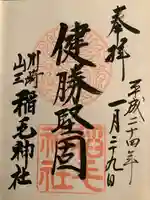 奉拝
平成二十四年
一月二十九日
健勝堅固
川崎
山王
稲毛神社
稲毛神社